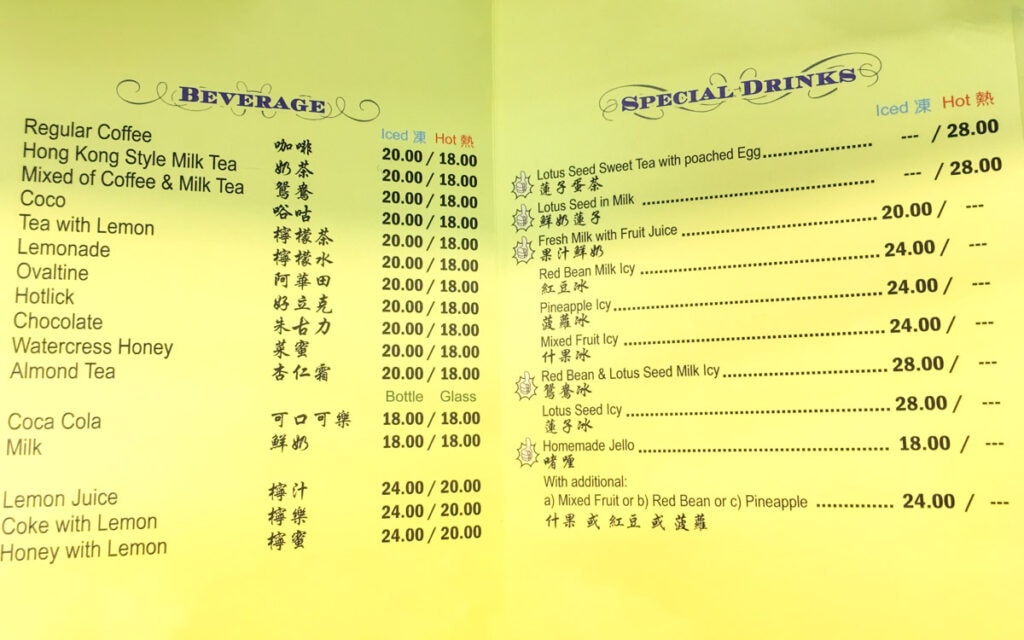 BEVERAGE
Iced 凍 Hot 熱
Regular Coffee 咖啡 20.00 / 18.00
Hong Kong Style Milk Tea 奶茶 20.00 / 18.00
Mixed of Coffee & Milk Tea 鴛鴦 20.00 / 18.00
Coco 唂咕 20.00 / 18.00
Tea with Lemon 檸檬茶 20.00 / 18.00
Lemonade 檸檬水 20.00 / 18.00
Ovaltine 阿華田 20.00 / 18.00
Hotlick 好立克 20.00 / 18.00
Chocolate 朱古力 20.00 / 18.00
Watercress Honey 菜蜜 20.00 / 18.00
Almond Tea 杏仁霜 20.00 / 18.00
Bottle Glass
Coca Cola 可口可樂 18.00 / 18.00
Milk 鮮奶 18.00 / 18.00
Lemon Juice 檸汁 24.00 / 20.00
Coke with Lemon 檸樂 24.00 / 20.00
Honey with Lemon 檸蜜 24.00 / 20.00
SPECIAL DRINKS
Iced 凍 Hot 熱
Lotus Seed Sweet Tea with poached Egg --- / 28.00
蓮子蛋茶
Lotus Seed in Milk --- / 28.00
鮮奶蓮子
Fresh Milk with Fruit Juice 20.00 / ---
果汁鮮奶
Red Bean Milk Icy 24.00 / ---
紅豆冰
Pineapple Icy 24.00 / ---
菠蘿冰
Mixed Fruit Icy 24.00 / ---
什果冰
Red Bean & Lotus Seed Milk Icy 28.00 / ---
鴛鴦冰
Lotus Seed Icy 28.00 / ---
蓮子冰
Homemade Jello 18.00 / ---
啫喱
With additional:
a) Mixed Fruit or b) Red Bean or c) Pineapple 24.00 / ---
什果 或 紅豆 或 菠蘿